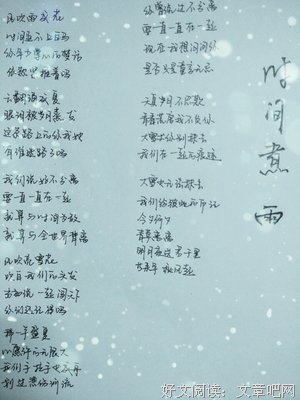 时间煮雨
风吹雨成花
时间追不上白马
你年少掌心的梦话
依然紧握着吗
云翻涌成夏
眼泪被岁月蒸发
这条路上的你我她
有谁迷路了吗
我们说好不分离
要一直一直在一起
就算与时间为敌
就算与全世界背离
风吹亮雪花
吹白我们的头发
当初说一起闯天下
你们还记得吗
那一年盛夏
心愿许的无限大
我们手拉手也成舟
划过悲伤河流
你曾说过不分离
要一直一直在一起
现在我想问问你
是否只是童言无忌
天真岁月不忍欺
青春荒唐我不负你
大雪求你别抹去
我们在一起的痕迹
大雪也无法抹去
我们给彼此的印记
今夕何夕
青草离离
明月夜送君千里
等来年秋风起
好文阅读：文章吧网